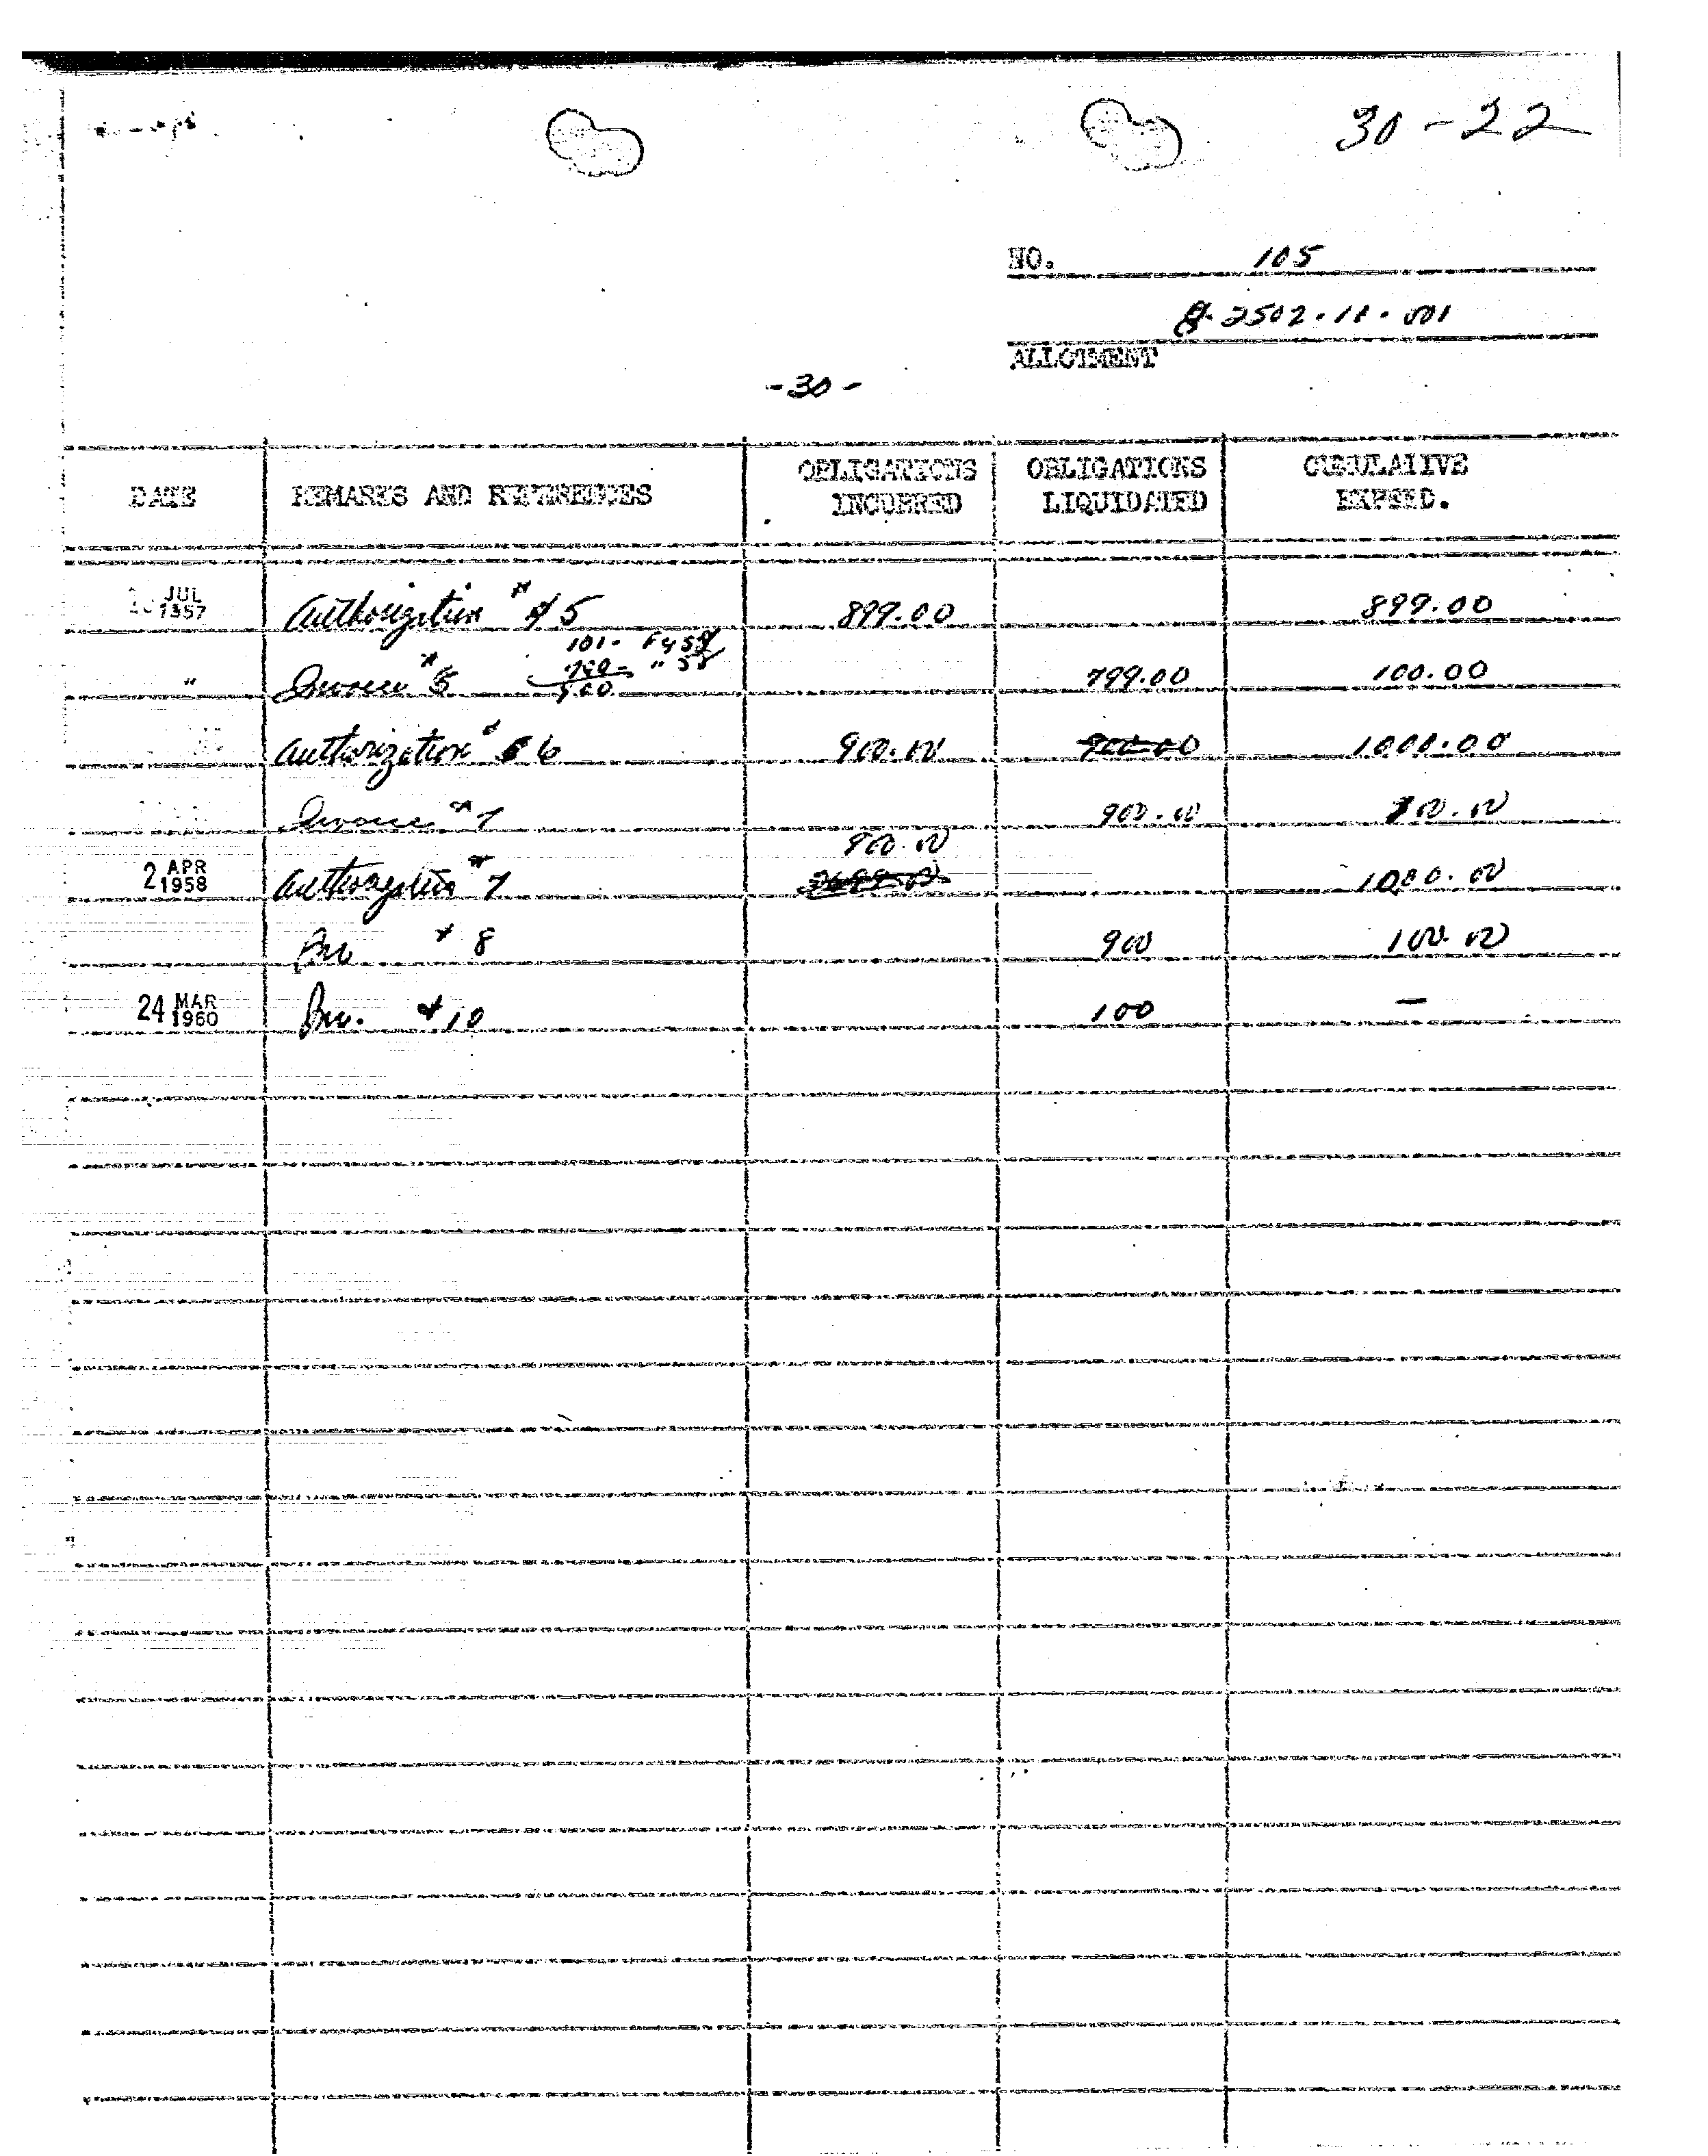 30-22
NO. 105
2502.11.001
ALLOTMENT
-30-
DATE REMARKS AND REFERENCES OBLIGATIONS INCURRED OBLIGATIONS LIQUIDATED CUMULATIVE EXPEND.
JUL 1957 Authorization # 5 899.00 899.00
101- FY 57
" Invoice # 5 799.00 100.00
Authorization # 6 900.00 900.00 1000.00
Invoice # 7 900.00 100.00
900.00
2 APR 1958 Authorization # 7 1000.00
Inv # 8 900 100.00
24 MAR 1960 Inv. # 10 100 —